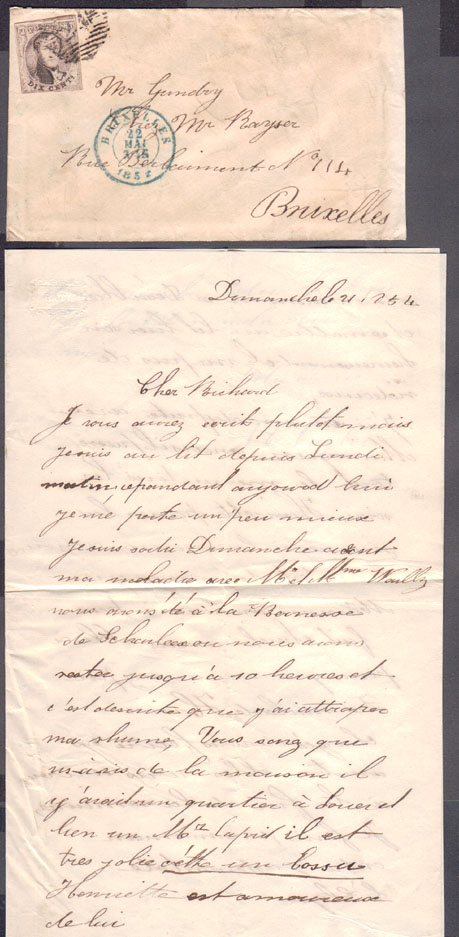 DIX CENTS
BRUXELLES
22
MAI
185
Mr Gundry
chez Mr Kayser
Rue Berlaimont No 114
Bruxelles
Dimanche le 21 1854
Cher Richard
Je vous aurez écrit plutot mais
je suis au lit depuis Lundi
matin cepandant aujourd hui
je me porte un peu mieux
Je suis sortie Dimanche avent
ma maladie avec Mr et Mme
nous avons été à la Barnesse
de où nous avons
rester jusqu'à 10 heures et
c'est desuite que j'ai attraper
ma rhume. Vous savez que
vis à vis de la maison il
y avait un quartier à louer et
bien un Mr il est
tres jolie cette un bossu
Henriette est amoureux
de lui